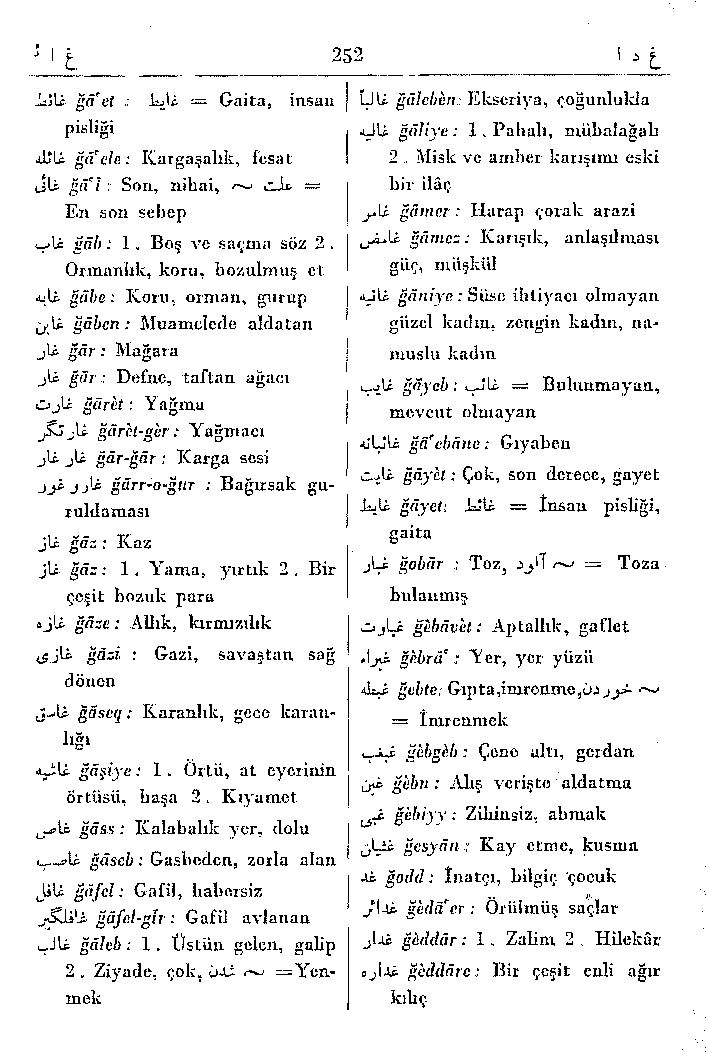 غ ا ئ 252 غ د ا
غائط ğāʿet : غايط = Gaita, insan
pisliği
غائله ğāʿele : Kargaşalık, fesat
غائی ğāʿî : Son, nihai, ～ علت =
En son sebep
غاب ğāb : 1. Boş ve saçma söz 2.
Ormanlık, koru, bozulmuş et
غابه ğābe : Koru, orman, gurup
غابن ğāben : Muamelede aldatan
غار ğār : Mağara
غار ğār : Defne, taflan ağacı
غارت ğārèt : Yağma
غارتگر ğārèt-gèr : Yağmacı
غار غار ğār-ğār : Karga sesi
غار و غور ğārr-o-ğur : Bağırsak gu-
ruldaması
غاز ğāz : Kaz
غاز ğāz : 1. Yama, yırtık 2. Bir
çeşit bozuk para
غازه ğāze : Allık, kırmızılık
غازی ğāzi : Gazi, savaştan sağ
dönen
غاسق ğāseq : Karanlık, gece karan-
lığı
غاشیه ğāşiye : 1. Örtü, at eyerinin
örtüsü, başa 2. Kıyamet
غاص ğāss : Kalabalık yer, dolu
غاصب ğāseb : Gasbeden, zorla alan
غافل ğāfel : Gafil, habersiz
غافلگیر ğāfel-gîr : Gafil avlanan
غالب ğāleb : 1. Üstün gelen, galip
2. Ziyade, çok, شدن ～ = Yen-
mek
غالباً ğālebèn : Ekseriya, çoğunlukla
غالیه ğāliye : 1. Pahalı, mübalağalı
2. Misk ve amber karışımı eski
bir ilâç
غامر ğāmer : Harap çorak arazi
غامض ğāmez : Karışık, anlaşılması
güç, müşkül
غانیه ğāniye : Süse ihtiyacı olmayan
güzel kadın, zengin kadın, na-
muslu kadın
غایب ğāyeb : غائب = Bulunmayan,
mevcut olmayan
غایبانه ğāʿebāne : Gıyaben
غایت ğāyèt : Çok, son derece, gayet
غایط ğāyet : غائط = İnsan pisliği,
gaita
غبار ğobār : Toz, آلود ～ = Toza
bulanmış
غباوت ğèbāvèt : Aptallık, gaflet
غبراء ğèbrāʿ : Yer, yer yüzü
غبطه ğebte : Gıpta, imrenme, خوردن ～
= İmrenmek
غبغب ğèbgèb : Çene altı, gerdan
غبن ğèbn : Alış verişte aldatma
غبی ğèbiyy : Zihinsiz, ahmak
غثیان ğesyān : Kay etme, kusma
غد ğodd : İnatçı, bilgiç çocuk
غدائر ğèdāʿer : Örülmüş saçlar
غدار ğèddār : 1. Zalim 2. Hilekâr
غداره ğèddāre : Bir çeşit enli ağır
kılıç